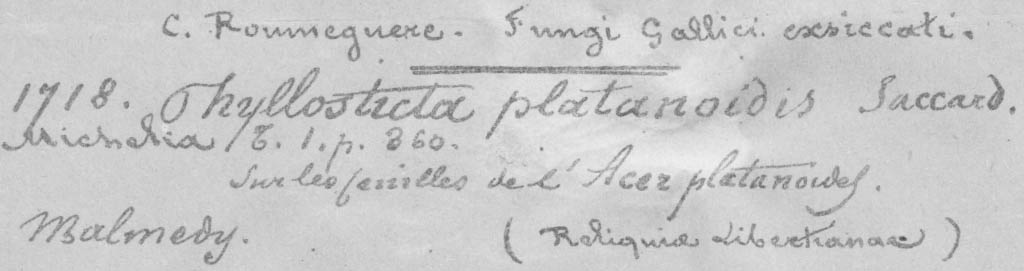 C. Roumeguere. Fungi Gallici exsiccati.
1718. Phyllosticta platanoidis Saccard.
Michelia T. 1. p. 360.
Sur les feuilles de l'Acer platanoides.
Malmedy. (Reliquiæ Libertianae)